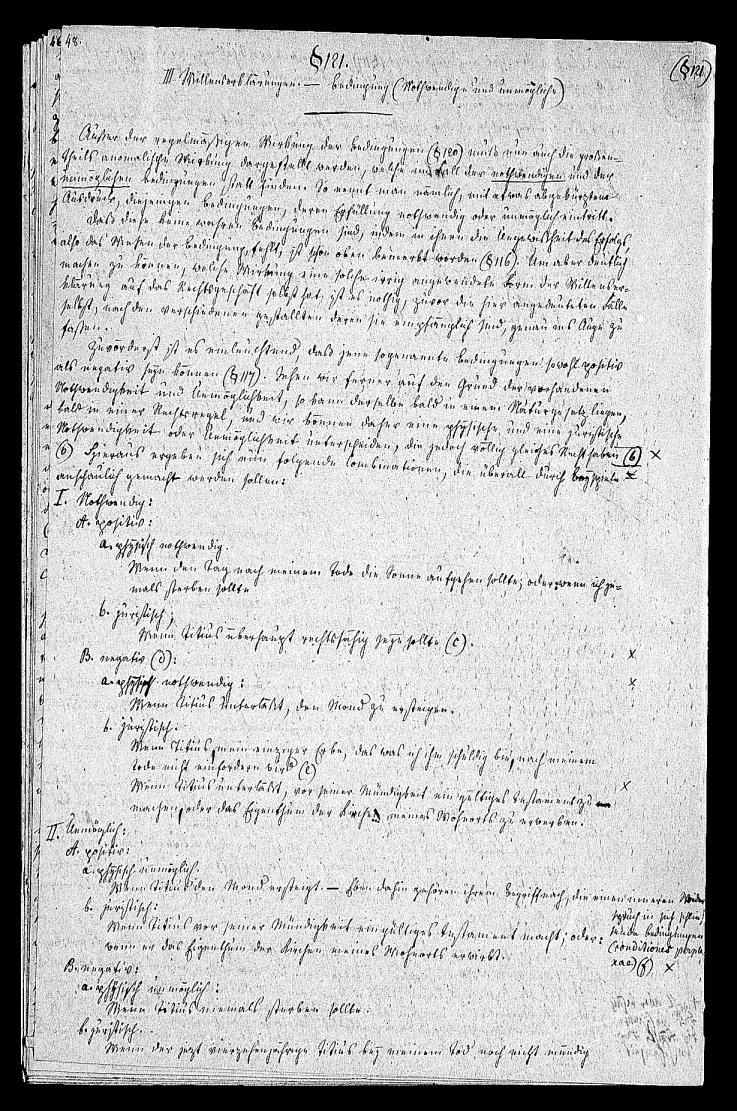 48.
§ 121.
(§ 121)
III Willenserklärungen. — Bedingung (Nothwendige und unmögliche)
Außer der regelmäßigen Wirkung der Bedingungen (§ 120) muß nun auch die großen-
theils anomalische Wirkung dargestellt werden, welche im Fall der nothwendigen und der
unmöglichen Bedingungen statt finden. So nennt man nämlich, mit etwas abgekürztem
Ausdruck, diejenigen Bedingungen, deren Erfüllung nothwendig oder unmöglich eintritt.
Daß diese keine wahren Bedingungen sind, indem in ihnen die Ungewißheit des Erfolgs,
also das Wesen der Bedingung, fehlt, ist schon oben bemerkt worden (§ 116). Um aber deutlich
machen zu können, welche Wirkung eine solche irrig angewendete Form der Willenser-
klärung auf das Rechtsgeschäft selbst hat, ist es nöthig, zuvor die hier angedeuteten Fälle
selbst, nach den verschiedenen Gestalten deren sie empfänglich sind, genau ins Auge zu
fassen.
Zuvörderst ist es einleuchtend, daß jene sogenannte Bedingungen sowohl positiv
als negativ seyn können (§ 117). Sehen wir ferner auf den Grund der vorhandenen
Nothwendigkeit und Unmöglichkeit, so kann derselbe bald in einem Naturgesetz liegen,
bald in einer Rechtsregel, und wir können daher eine physische, und eine juristische
Nothwendigkeit oder Unmöglichkeit unterscheiden, die jedoch völlig gleiches Recht haben (b) x
(b) Hieraus ergeben sich nun folgende Combinationen, die überall durch Beyspiele
anschaulich gemacht werden sollen:
I. Nothwendig:
A. positiv:
a. physisch nothwendig.
Wenn den Tag nach meinem Tode die Sonne aufgehen sollte; oder: wenn ich je-
mals sterben sollte
b. juristisch;
Wenn Titius überhaupt rechtsfähig seyn sollte (c).
B. negativ (d): x
a. physisch nothwendig: x
Wenn Titius unterläßt, den Mond zu ersteigen.
b. juristisch.
Wenn Titius, mein einziger Erbe, das was ich ihm schuldig bin, nach meinem
Tode nicht einfordern wird (e)
Wenn Titius unterläßt, vor seiner Mündigkeit ein gültiges Testament zu x
machen, oder das Eigenthum der Kirche meines Wohnorts zu erwerben.
II. Unmöglich:
A. positiv:
a. physisch unmöglich.
Wenn Titius den Mond ersteigt. — Eben dahin gehören ihrem Begriff nach, die einen inneren Wider
spruch in sich schlie-
ßende Bedingungen
(conditiones perple-
xae) (f) x
b. juristisch:
Wenn Titius vor seiner Mündigkeit ein gültiges Testament macht; oder:
wenn er das Eigenthum der Kirchen meines Wohnorts erwirbt.
B. negativ:
a. physisch unmöglich:
Wenn Titius niemals sterben sollte.
b. juristisch.
Wenn der jetzt vierzehnjährige Titius bey meinem Tod noch nicht mündig